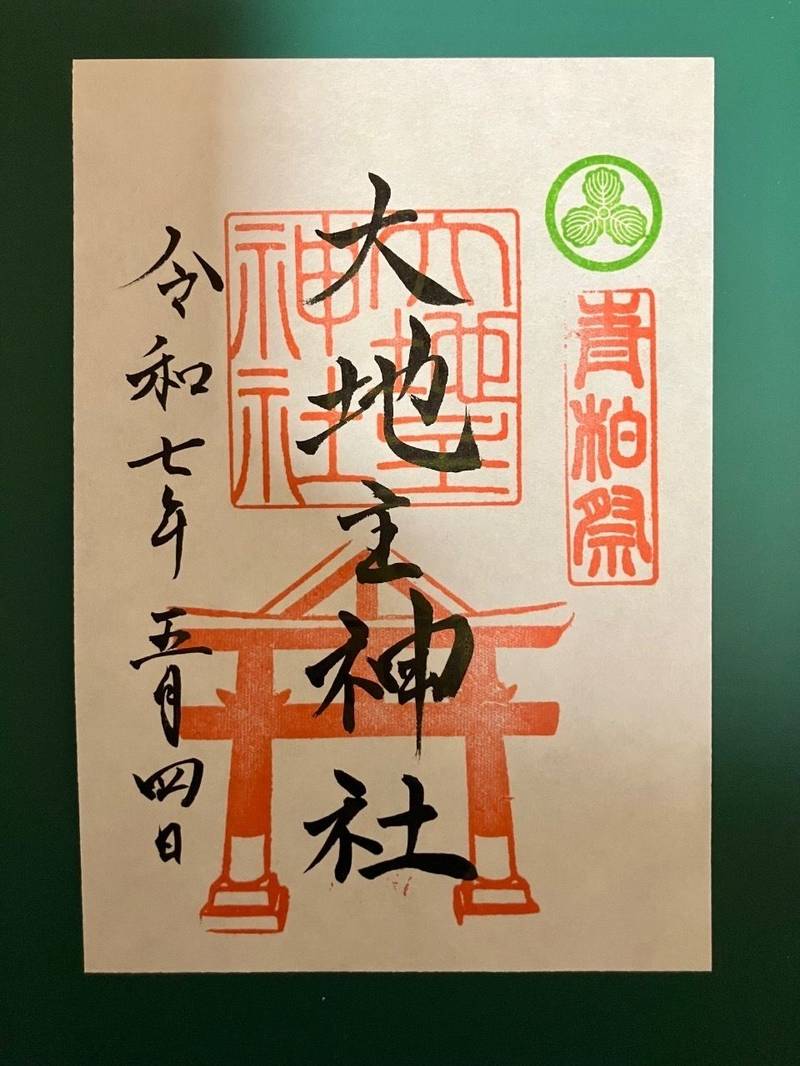 青柏祭
大地主神社
大地主神社
令和七年五月四日